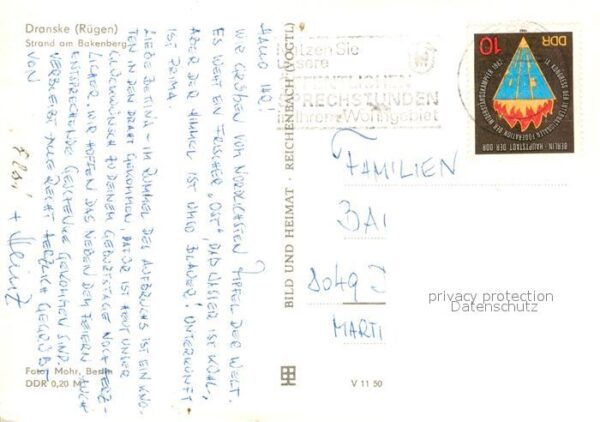 Dranske (Rügen)
Strand am Bakenberg
HALLO IHR!
WIR GRÜßEN VOM NÖRDLICHSTEN ZIPFEL DER WELT.
ES WEHT EIN FRISCHER „OST“, DAS WASSER IST KÜHL,
ABER DER HIMMEL IST UMSO BLAUER! UNTERKUNFT
IST PRIMA
LIEBE BETTINA – IM RUMMEL DES AUFBRUCHS IST EIN KNO-
TEN IN DEN DRAHT GEKOMMEN, DAFÜR IST HEUT UNSER
GLÜCKWUNSCH ZU DEINEM GEBURTSTAGE NOCH HERZ-
LICHER. WIR HOFFEN DAS NEBEN DEM FEIERN AUCH
ENTSPRECHENDE GESCHENKE GEKOMMEN SIND.
ALLE RECHT HERZLICH GEGRÜßT
VON
+ Heinz
Foto: Mohr, Berlin
DDR 0,20 M
BILD UND HEIMAT · REICHENBACH (VOGTL)
V 11 50
Nutzen Sie
unsere
ÖFFENTLICHEN
SPRECHSTUNDEN
in Ihrem Wohngebiet
10
DDR
11. KONGRESS DER INTERNATIONALEN FÖDERATION DER WIDERSTANDSKÄMPFER 1987
BERLIN · HAUPTSTADT DER DDR
FAMILIEN
BAI
8049
MARTI
privacy protection
Datenschutz